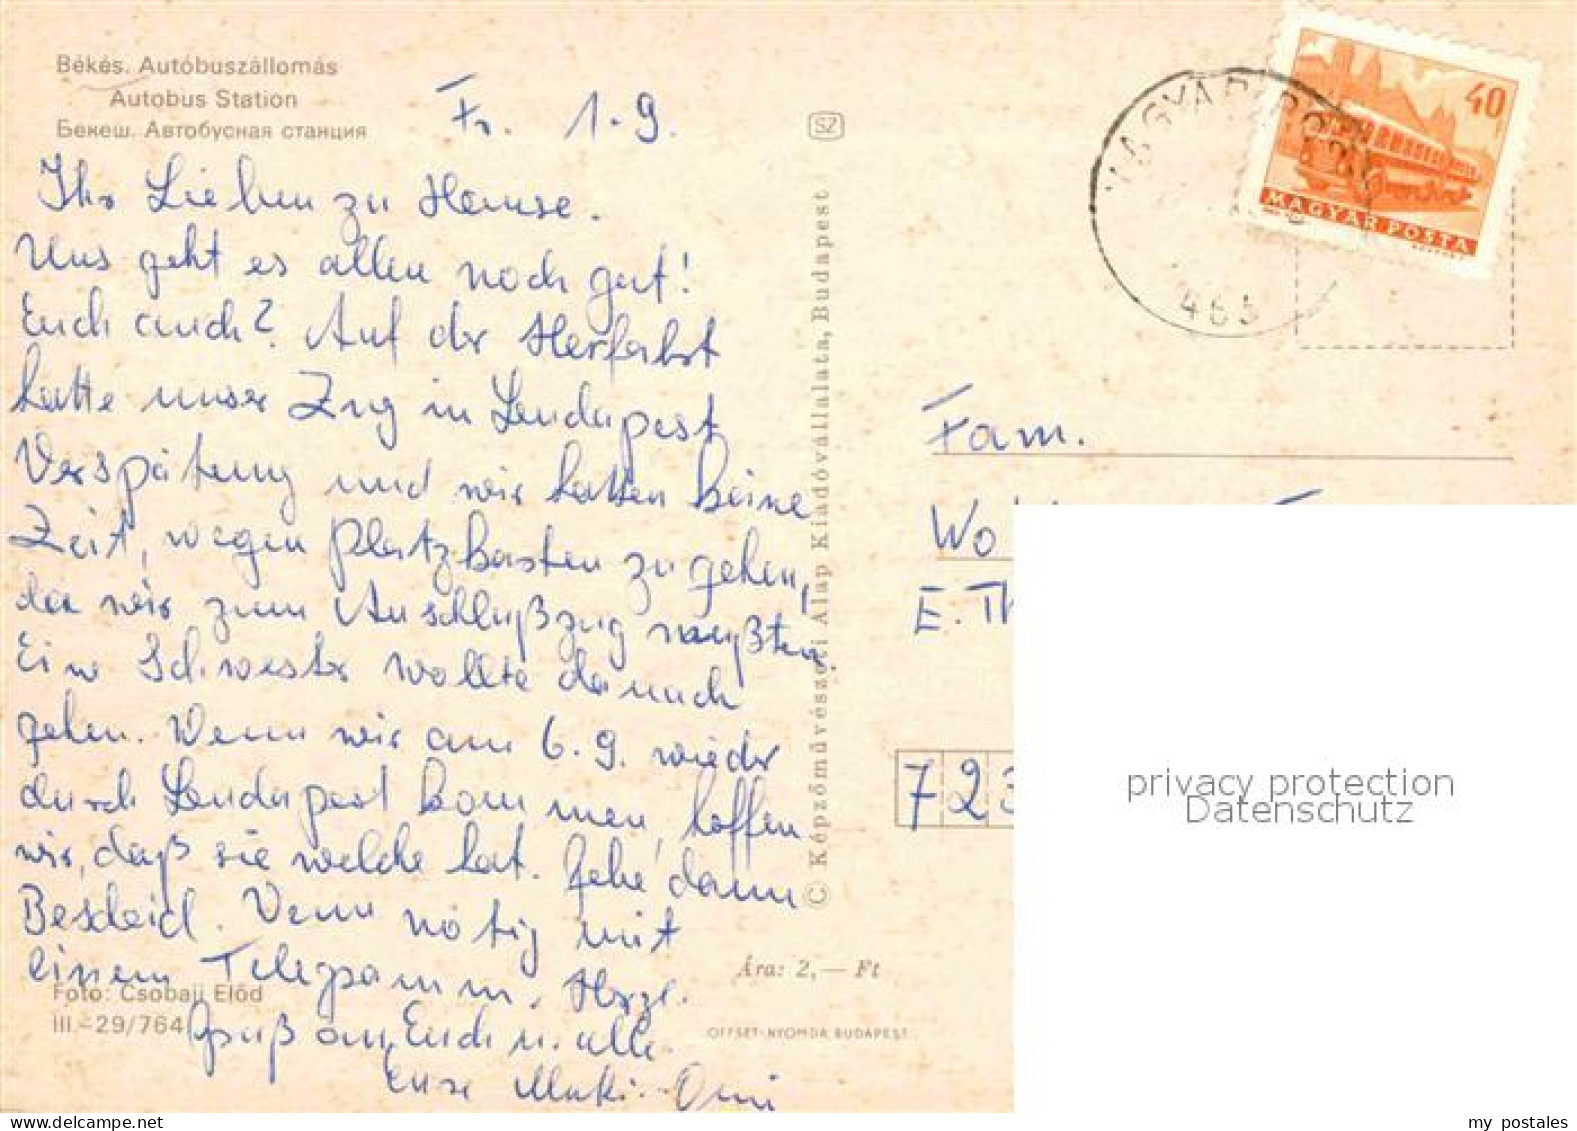 Békés. Autóbuszállomás
Autobus Station
Бекеш. Автобусная станция
Fr. 1.9.
Ihr Lieben zu Hause.
Uns geht es allen noch gut!
Euch auch? Auf der Herfahrt
hatte unser Zug in Budapest
Verspätung und wir hatten keine
Zeit, wegen Platzkarten zu gehen,
da wir zum Anschlußzug mußten.
Eine Schwester wollte danach
gehen. Wenn wir am 6.9. wieder
durch Budapest kommen, hoffen
wir, daß sie welche hat. Gebe dann
Bescheid. Wenn nötig mit
einem Telegramm. Herzl.
Gruß an Euch u. alle.
Eure Mutti - Omi
Foto: Csobaji Előd
III.-29/764
SZ
© Képzőművészeti Alap Kiadóvállalata, Budapest
Ára: 2,— Ft
OFFSET-NYOMDA, BUDAPEST
MAGYAR POSTA
463
40
MAGYAR POSTA
Fam.
Wo
E. Th
723
privacy protection
Datenschutz
my postales